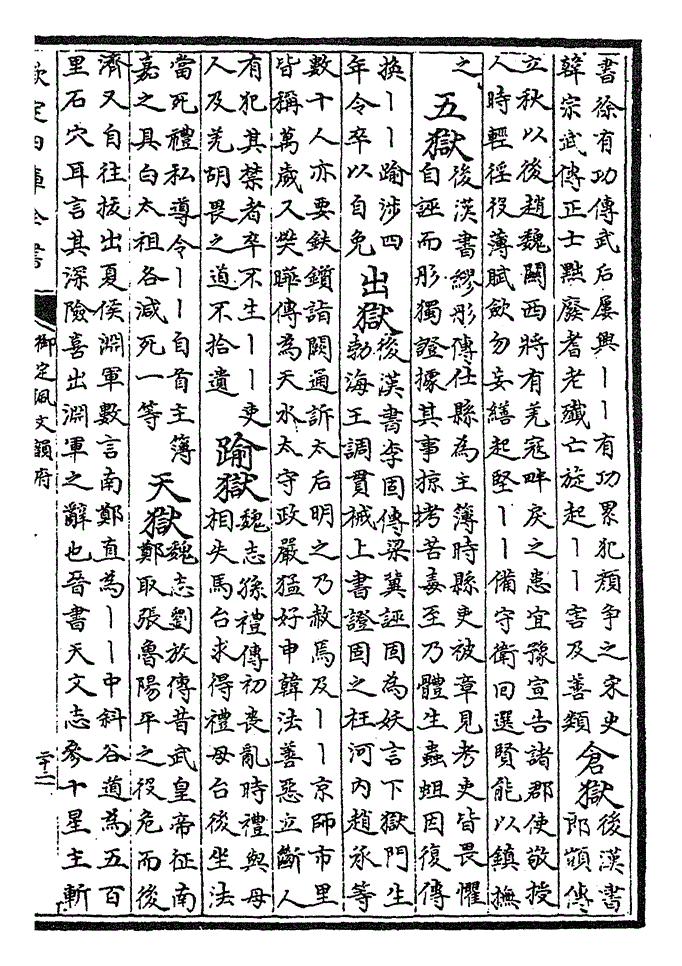 書徐有功傳武后屢興丨丨有功累犯顔爭之宋史
韓宗武傳正士㸃廢耆老殲亡旋起丨丨害及善類
倉獄
後漢書
郎顗傳
立秋以後趙魏關西將有羌寇畔戾之患宜豫宣告諸郡使敬授
人時輕徭役薄賦歛勿妄繕起堅丨丨備守衛回選賢能以鎮撫
之
五獄
後漢書繆彤傳仕縣為主簿時縣吏被章見考吏皆畏懼
自誣而彤獨證據其事掠拷苦毒至乃體生蟲蛆因復傳
換丨丨踰涉四
年令卒以自免
出獄
後漢書李固傳梁冀誣固為妖言下獄門生
勃海王調貫械上書證固之枉河内趙承等
數十人亦要鈇鑕詣闕通訴太后明之乃赦焉及丨丨京師市里
皆稱萬歲又樊曄傳為天水太守政嚴猛好申韓法善惡立斷人
有犯其禁者卒不生丨丨吏
人及羌胡畏之道不拾遺
踰獄
魏志孫禮傳初喪亂時禮與母
相失馬台求得禮母台後坐法
當死禮私導令丨丨自首主簿
嘉之具白太祖各減死一等
天獄
魏志劉放傳昔武皇帝征南
鄭取張魯陽平之役危而後
濟又自往拔出夏侯淵軍數言南鄭直為丨丨中斜谷道為五百
里石穴耳言其深險喜出淵軍之辭也晉書天文志參十星主斬
欽定四庫全書
御定佩文韻府
二十二